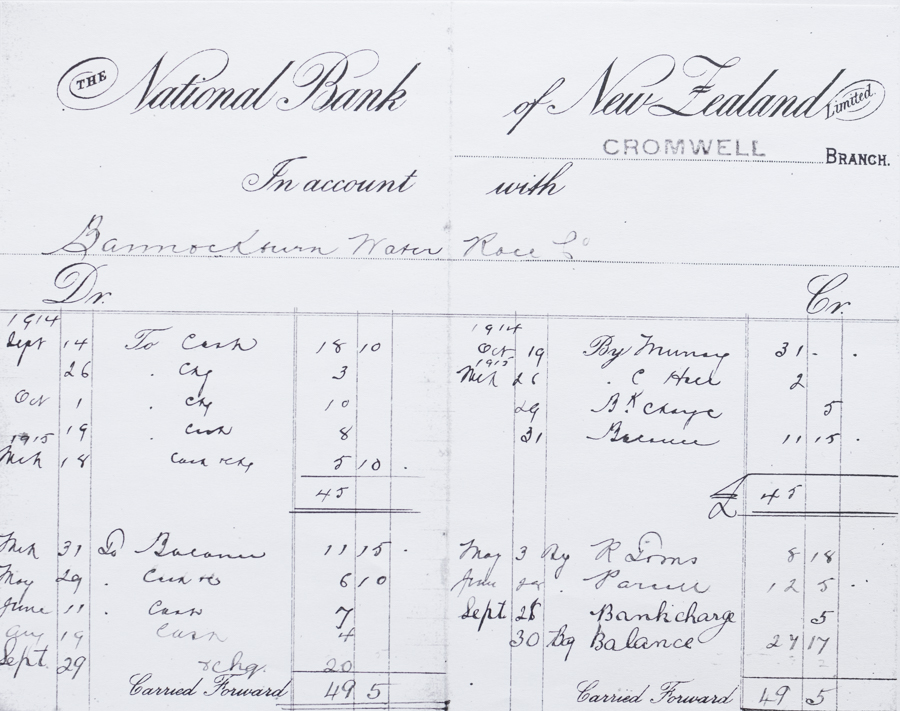 THE National Bank of New Zealand Limited
CROMWELL BRANCH.
In account with
Bannockburn Water Race Co
Dr. Cr.
1914
Sept 14 To Cash 18 10
26 . Chq 3
Oct 1 . Chq 10
19 . Cash 8
1915
Mch 18 Cash &chq 5 10 .
45
Mch 31 To Balance 11 15 .
May 29 . Cash 6 10
June 11 . Cash 7
Aug 19 Cash 4
Sept. 29 &chq. 20
Carried Forward 49 5
1914
Oct 19 By Murray 31 - .
1915
Mch 26 . C Hall 2
29 Bk charge 5
31 Balance 11 15 .
£ 45
May 3 By R 8 18
June . Parcell 12 5 .
Sept 28 Bank charge 5
30 By Balance 27 17
Carried Forward 49 5